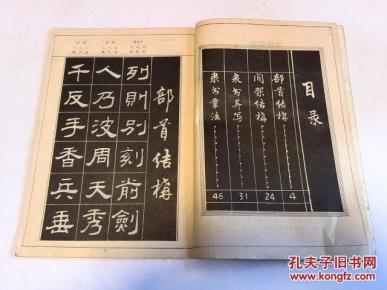 目录
部首结构 4
间架结构 24
隶书异写 31
隶书章法 46
部首结构
列则别刻前剑
人乃波周天秀
千反手香兵垂
孔夫子旧书网